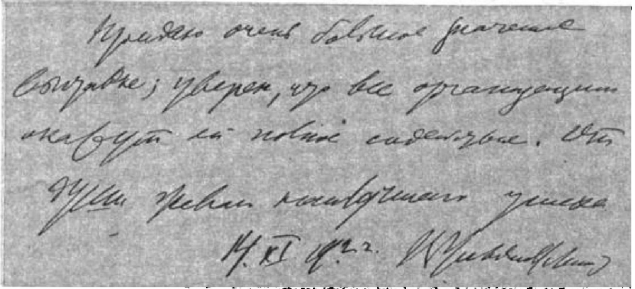 Придаю очень большое значение
выставке; уверен, что все организации
окажут ей полное содействие. От
души желаю наилучшего успеха
14. XI 1922 г. В. Ульянов (Ленин)